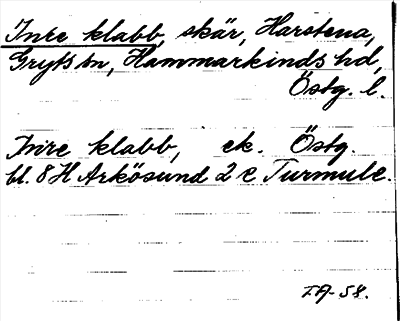 Inre klabb, skär, Harstena,
Gryts sn, Hammarkinds hd,
Östg. l.
Inre klabb, ek. Östg.
bl. 8 H Arkösund 2 c Turmulc.
I.A-58.